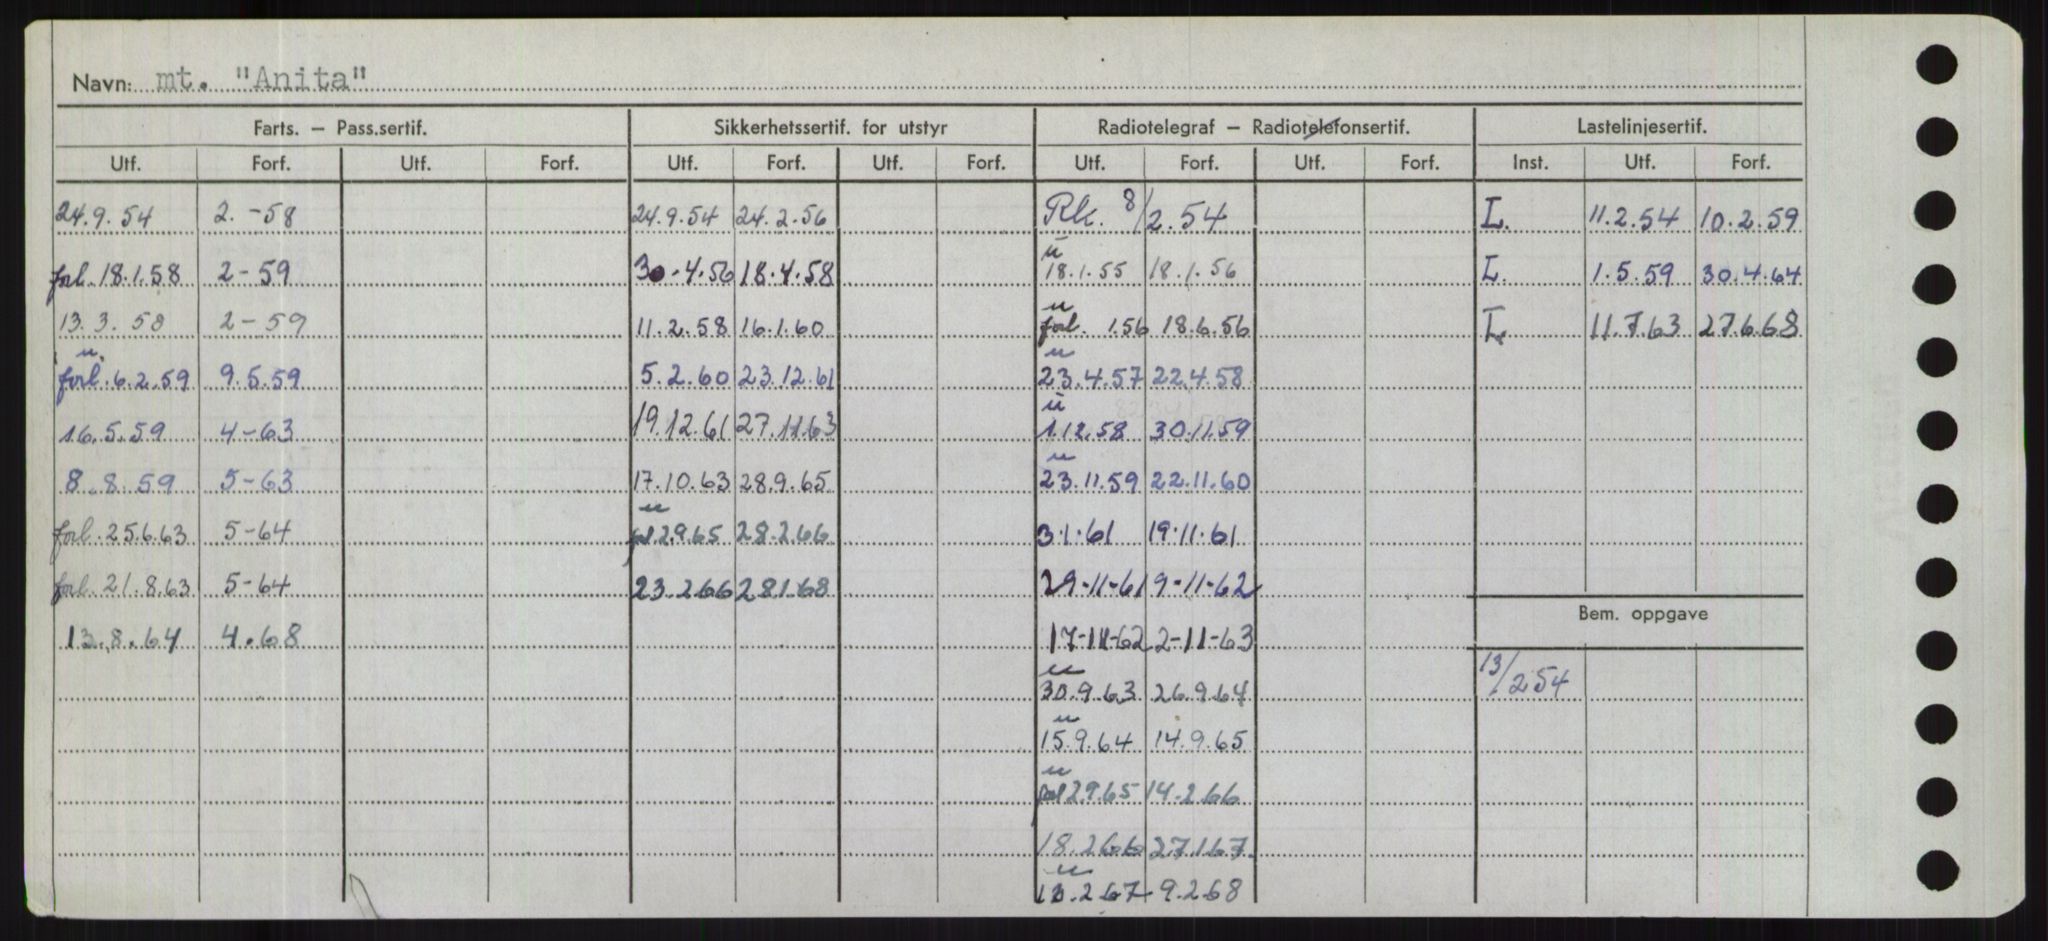 Navn: mt. "Anita"
Farts. – Pass.sertif. Sikkerhetssertif. for utstyr Radiotelegraf – Radiotelefonsertif. Lastelinjesertif.
Utf. Forf. Utf. Forf. Utf. Forf. Utf. Forf. Utf. Forf. Utf. Forf. Inst. Utf. Forf.
24.9.54 2.-58 24.9.54 24.2.56 Rk. 8/2.54 L. 11.2.54 10.2.59
u
forl. 18.1.58 2-59 30.4.56 18.4.58 18.1.55 18.1.56 L. 1.5.59 30.4.64
u
13.3.58 2-59 11.2.58 16.1.60 forl. 1.56 18.6.56 L. 11.7.63 27.6.68
u u
forl. 6.2.59 9.5.59 5.2.60 23.12.61 23.4.57 22.4.58
u
16.5.59 4-63 19.12.61 27.11.63 1.12.58 30.11.59
u
8.8.59 5-63 17.10.63 28.9.65 23.11.59 22.11.60
u
forl. 25.6.63 5-64 forl 2.9.65 28.2.66 3.1.61 19.11.61
forl. 21.8.63 5-64 23.2.66 28.1.68 29-11-61 9-11-62
Bem. oppgave
13.8.64 4.68 17-11-62 2-11-63
u
30.9.63 26.9.64 13/2 54
u
15.9.64 14.9.65
u
forl 2.9.65 14.2.66
18.2.66 27.1.67.
u
10.2.67 9.2.68